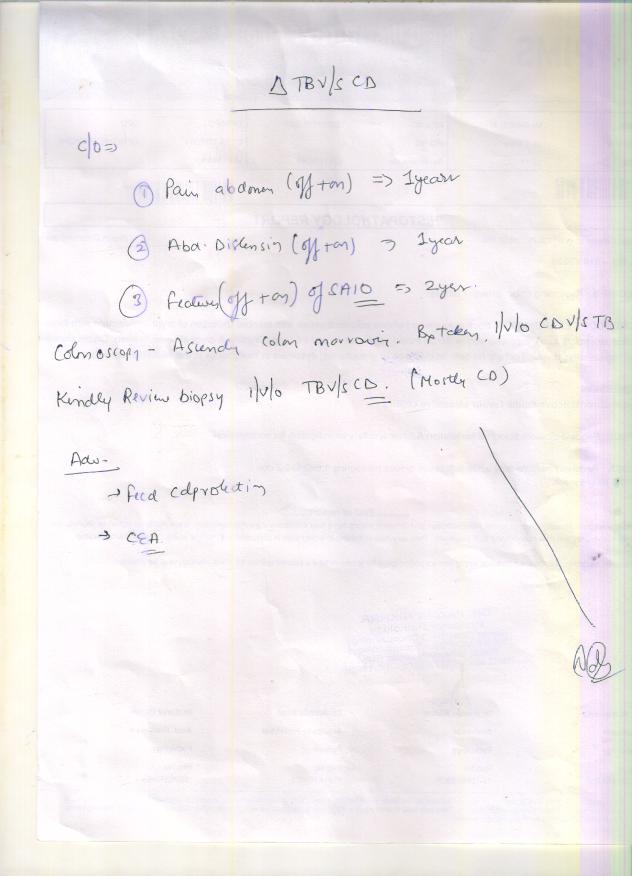 Δ TB V/S CD
C/O ⇒
① Pain abdomen (off + on) ⇒ 1 years
② Abd. Distensin (off + on) → 1 year
③ Features (off + on) of SAIO ⇒ 2 yrs.
Colonoscopy - Ascendy colon narrowin. Bx taken, i/v/o CD V/S TB
Kindly Review biopsy i/v/o TB V/S CD. (Mostly CD)
Adv-
→ Fecal calprotectin
→ CEA